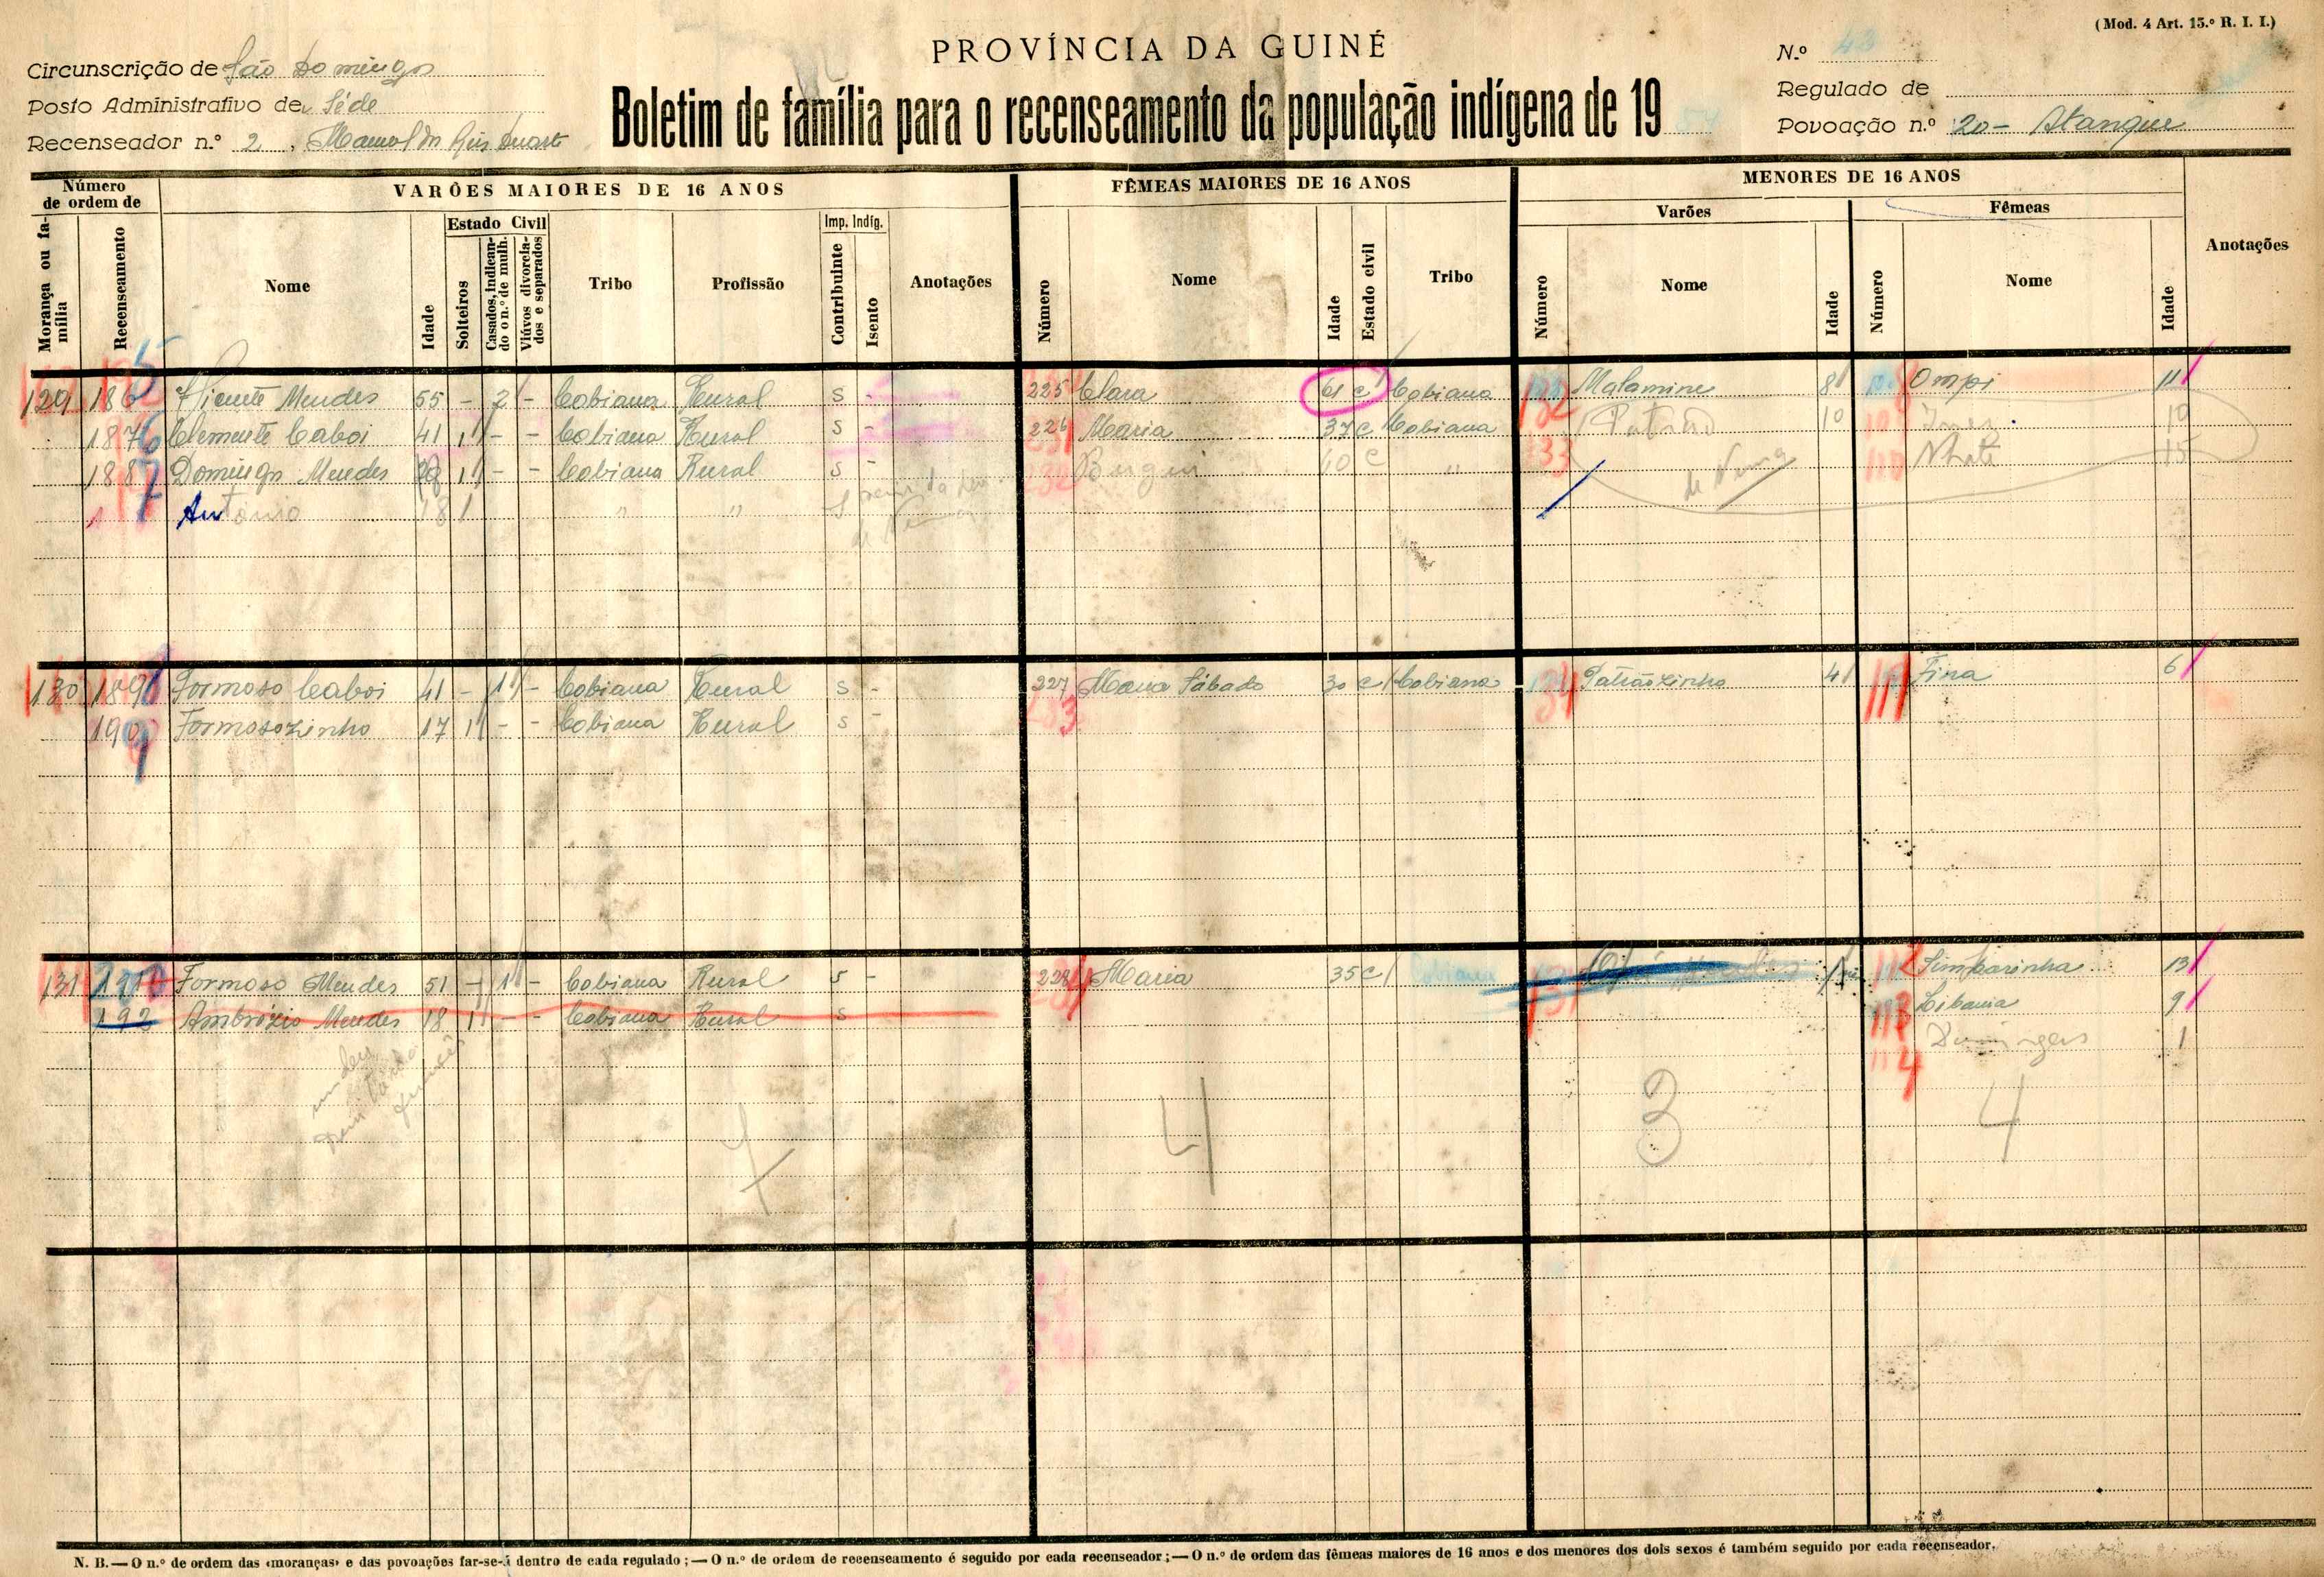 (Mod. 4 Art. 15.º R. I. I.)
PROVÍNCIA DA GUINÉ
Circunscrição de São Domingos
Posto Administrativo de Séde
Recenseador n.º 2
Boletim de família para o recenseamento da população indígena de 19
N.º 43
Regulado de
Povoação n.º 20- Atanque
Número de ordem de
VARÕES MAIORES DE 16 ANOS
FÊMEAS MAIORES DE 16 ANOS
MENORES DE 16 ANOS
Anotações
Morança ou família
Recenseamento
Nome
Idade
Estado Civil
Solteiros
Casados, indicando o n.º de mulh.
Viúvos divorciados e separados
Tribo
Profissão
Imp. Indíg.
Contribuinte
Isento
Anotações
Número
Nome
Idade
Estado civil
Tribo
Varões
Fêmeas
Número
Nome
Idade
Número
Nome
Idade
129 186 Vicente Mendes 55 - 2 - Cobiana Rural S - 225 Clara 61 C Cobiana 132 Malamine 8 Ompi 11
187 Clemente Caboi 41 1 - - Cobiana Rural S - 226 Maria 37 C Cobiana 10 10
188 Domingo Mendes 1 - - Cobiana Rural S - 40 C " 133 15
António 18 1 " "
130 189 Formoso Caboi 41 - 1 - Cobiana Rural S - 227 Maria Sábado 30 C Cobiana 134 Patrãozinho 4 111 Fira 6
190 Formosozinho 17 1 - - Cobiana Rural S -
131 191 Formoso Mendes 51 - 1 - Cobiana Rural S - 228 Maria 35 C Cobiana 112 Simbarinha 13
192 Ambrózio Mendes 18 1 - - Cobiana Rural S 113 Libania 9
114 Domingas 1
4 3 4
N. B. — O n.º de ordem das «moranças» e das povoações far-se-á dentro de cada regulado; — O n.º de ordem de recenseamento é seguido por cada recenseador; — O n.º de ordem das fêmeas maiores de 16 anos e dos menores dos dois sexos é também seguido por cada recenseador.